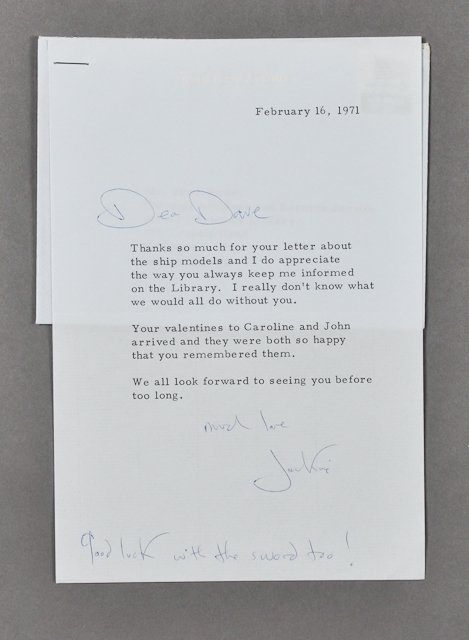 February 16, 1971
Dear Dave
Thanks so much for your letter about
the ship models and I do appreciate
the way you always keep me informed
on the Library. I really don't know what
we would all do without you.
Your valentines to Caroline and John
arrived and they were both so happy
that you remembered them.
We all look forward to seeing you before
too long.
much love
Jackie
Good luck with the sword too!